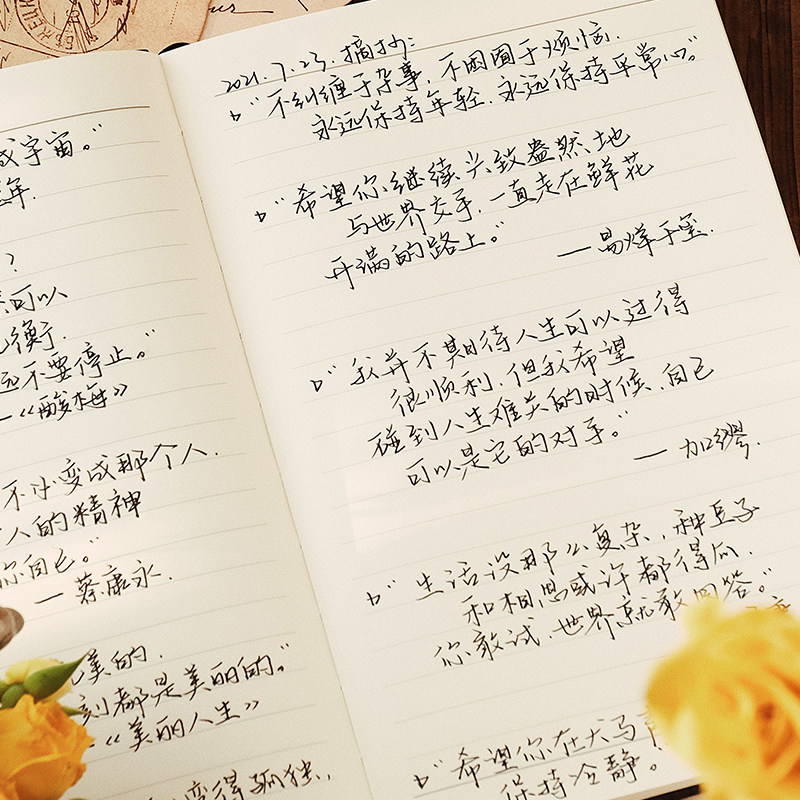 成宇宙。"
年.
?
可以
衡.
远不要停止。"
—《酸梅》
不小变成那个人.
人的精神
你自己。"
— 蔡康永.
美的.
刻都是美丽的。"
—《美丽人生》
变得孤独..
2021.7.23.摘抄:
"不纠缠于杂事,不困囿于烦恼.
永远保持年轻.永远保持平常心。"
"希望你继续兴致盎然地
与世界交手.一直走在鲜花
开满的路上。"
— 易烊千玺.
"我并不期待人生可以过得
很顺利,但我希望
碰到人生难关的时候.自己
可以是它的对手。"
— 加缪.
"生活没那么复杂,种豆子
和相思或许都得瓜.
你敢试.世界就敢回答。"
"希望你在犬马声
保持冷静。